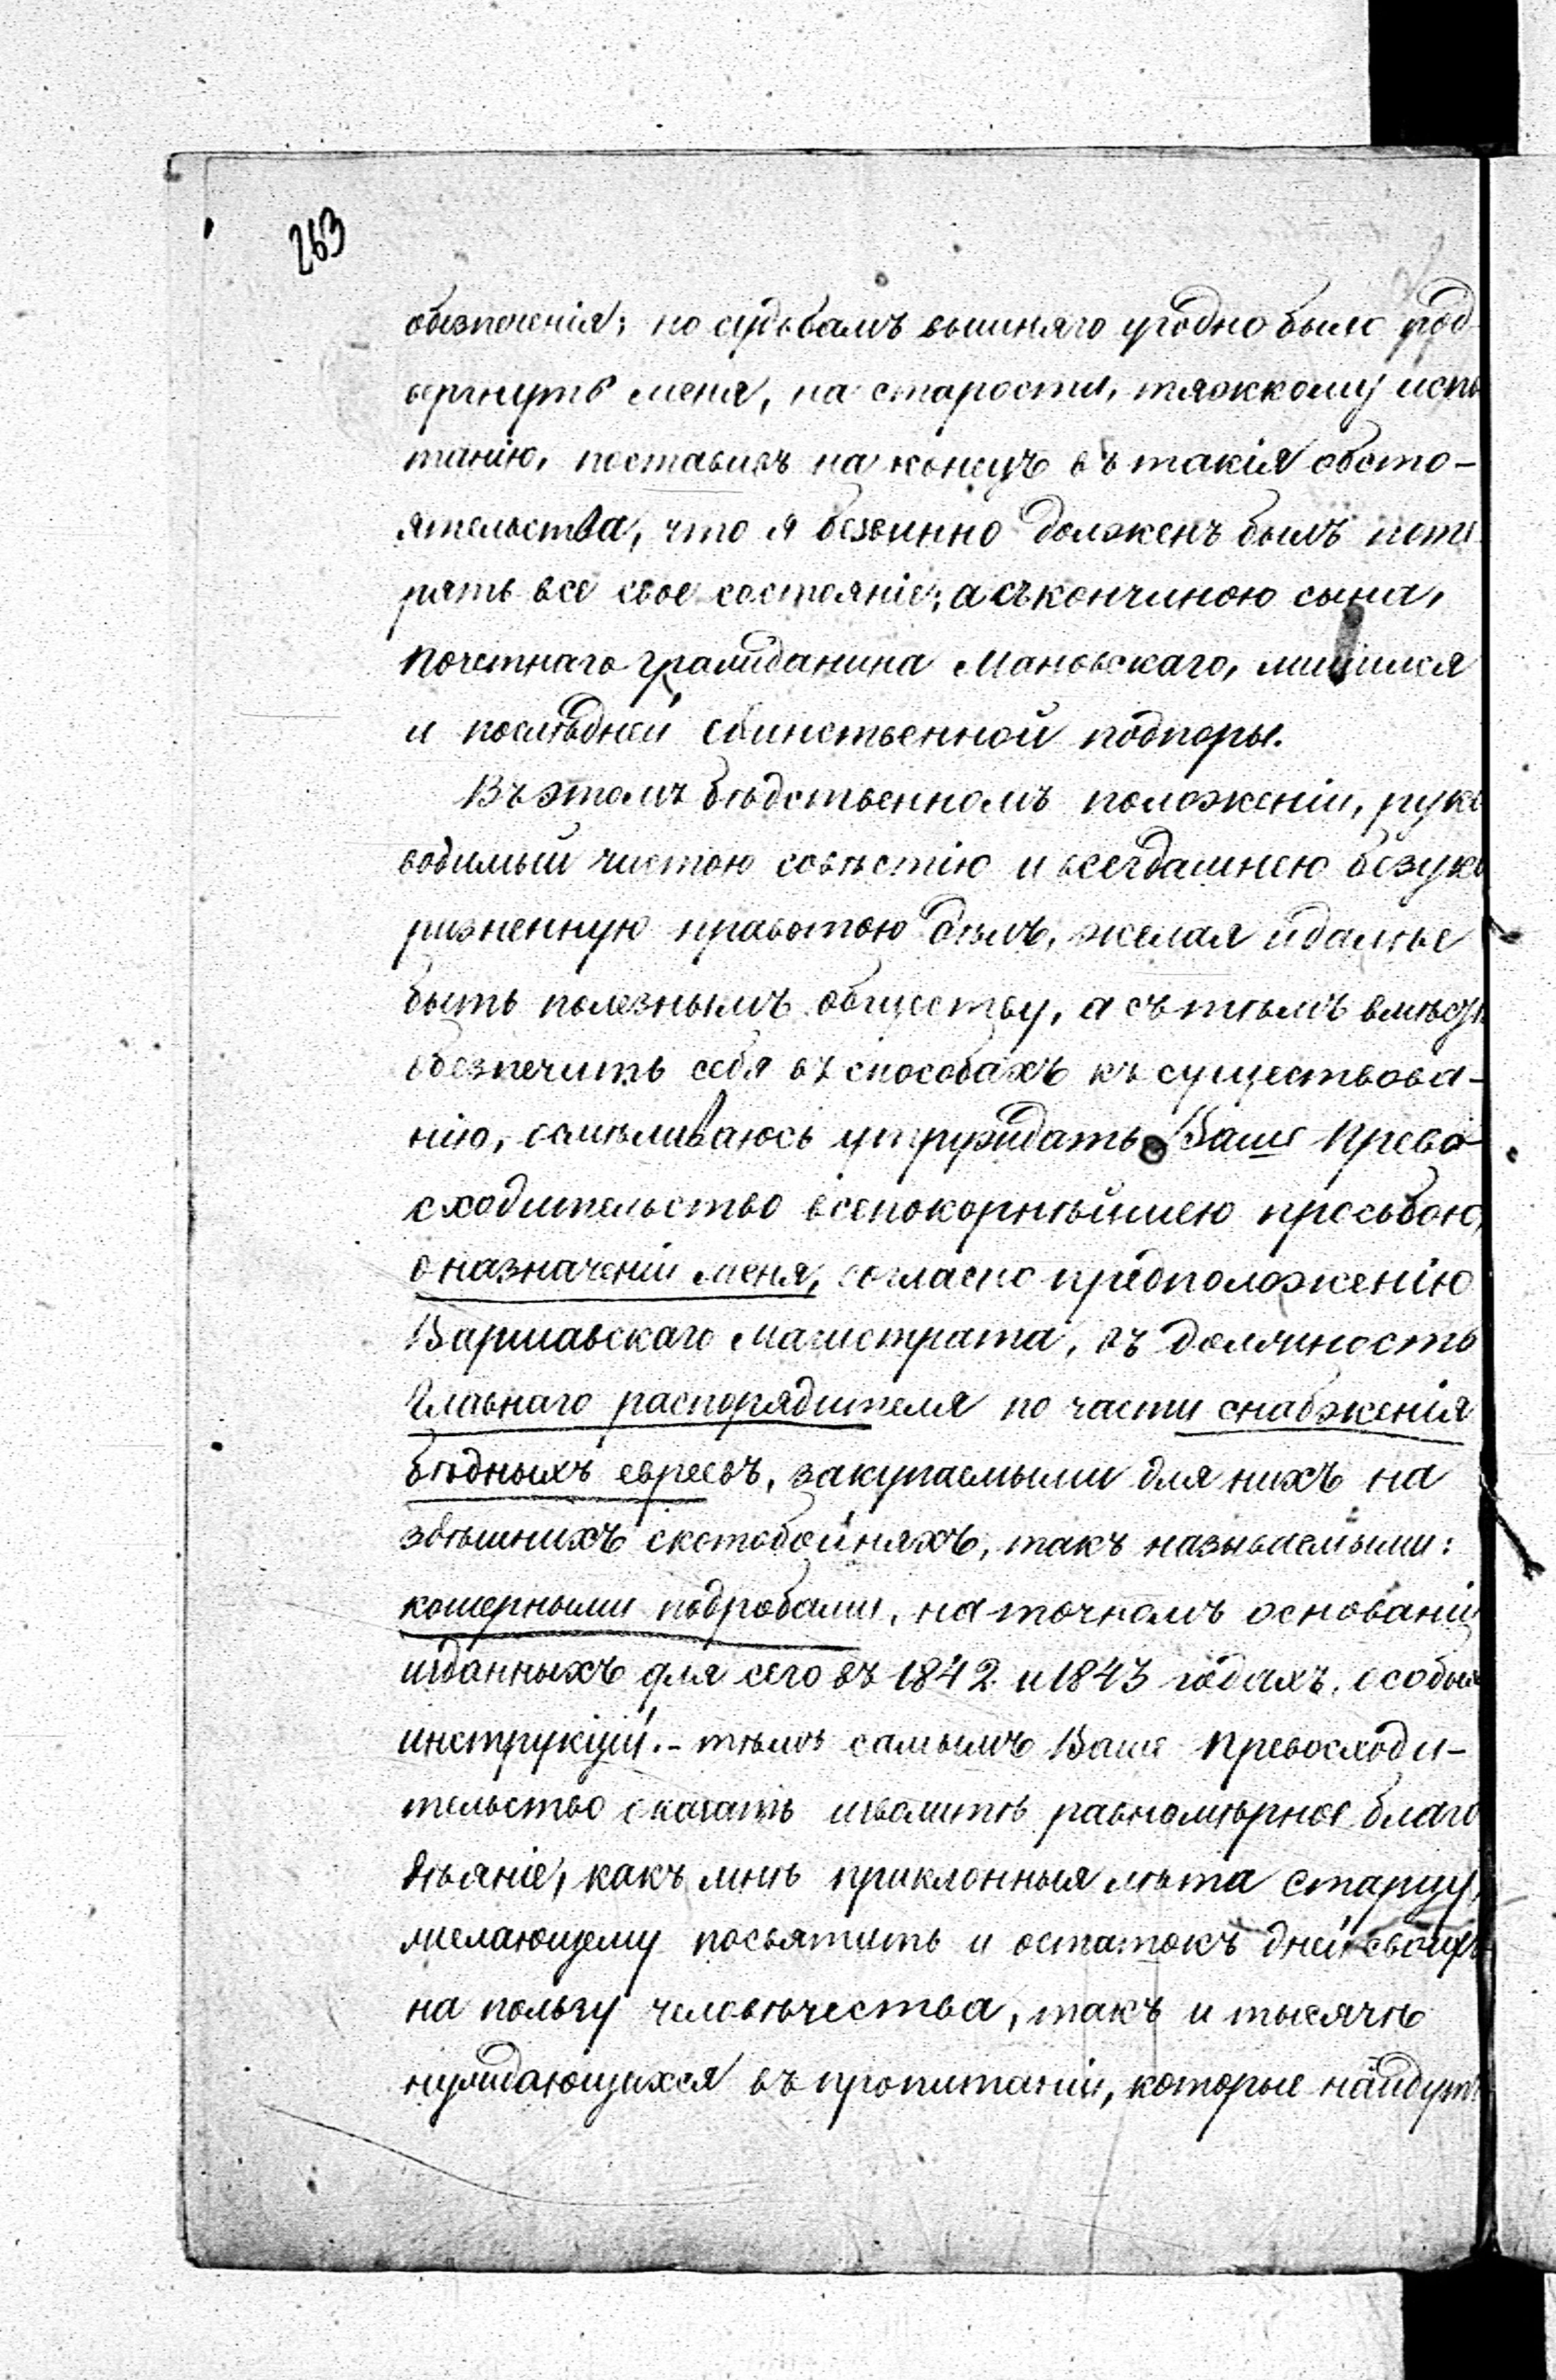 263
обезпеченія; но судьбамъ вышняго угодно было под-
вергнуть меня, на старости, тяжкому испы
танію, поставивъ на конецъ въ такія обсто-
ятельства, что я безвинно долженъ былъ поте
рять все свое состояніе; а съ кончиною сына,
почетнаго гражданина Мановскаго, лишился
и послѣдней единственной подпоры.
Въ этомъ бѣдственномъ положеніи, руко
водимый чистою совѣстію и всегдашнею безуко
ризненную правотою дѣлъ, желая и далѣе
быть полезнымъ обществу, а съ тѣмъ вмѣстѣ
обезпечить себя въ способахъ къ существова-
нію, осмѣливаюсь утруждать Ваше Прево-
сходительство всепокорнѣйшею просьбою,
о назначеніи меня, согласно предположенію
Варшавскаго Магистрата, въ должность
Главнаго распорядителя по части снабженія
бѣдныхъ евреевъ, закупаемыми для нихъ на
здѣшнихъ скотобойняхъ, такъ называемыми:
кошерными подробами, на точномъ основаніи
изданныхъ для сего въ 1842 и 1843 годахъ, особых
инструкцій.- тѣмъ самымъ Ваше Превосходи-
тельство оказать изволите равномѣрное благо
дѣяніе, какъ мнѣ приклонныя лѣта старцу,
желающему посвятить и остатокъ дней своихъ
на пользу человѣчества, такъ и тысячѣ
нуждающихся въ пропитаніи, которые найдутъ